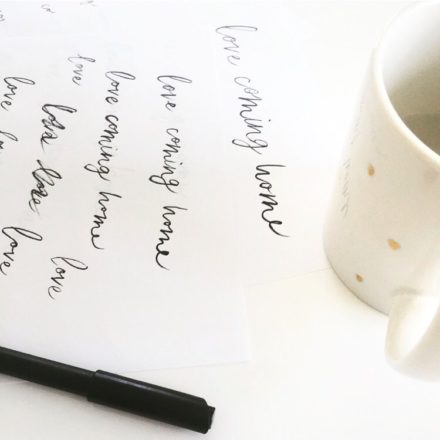 love coming home
love coming home
love coming home
love
love
love love
love
love